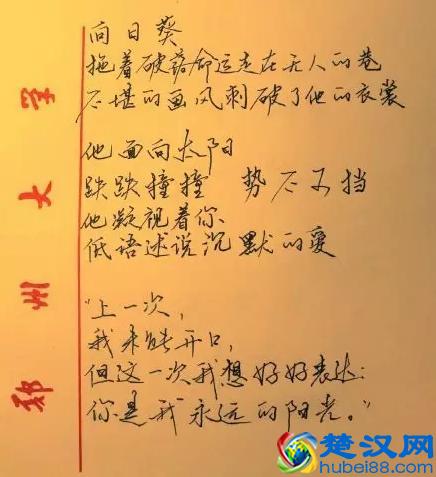 向日葵
拖着破落命运走在无人的巷
不堪的画风刺破了他的衣裳
他面向太阳
跌跌撞撞 势不可挡
他凝视着你
低语述说沉默的爱
“上一次,
我未能开口,
但这一次我想好好表达:
你是我永远的阳光。”
郑州大学
楚汉网
hubei88.com